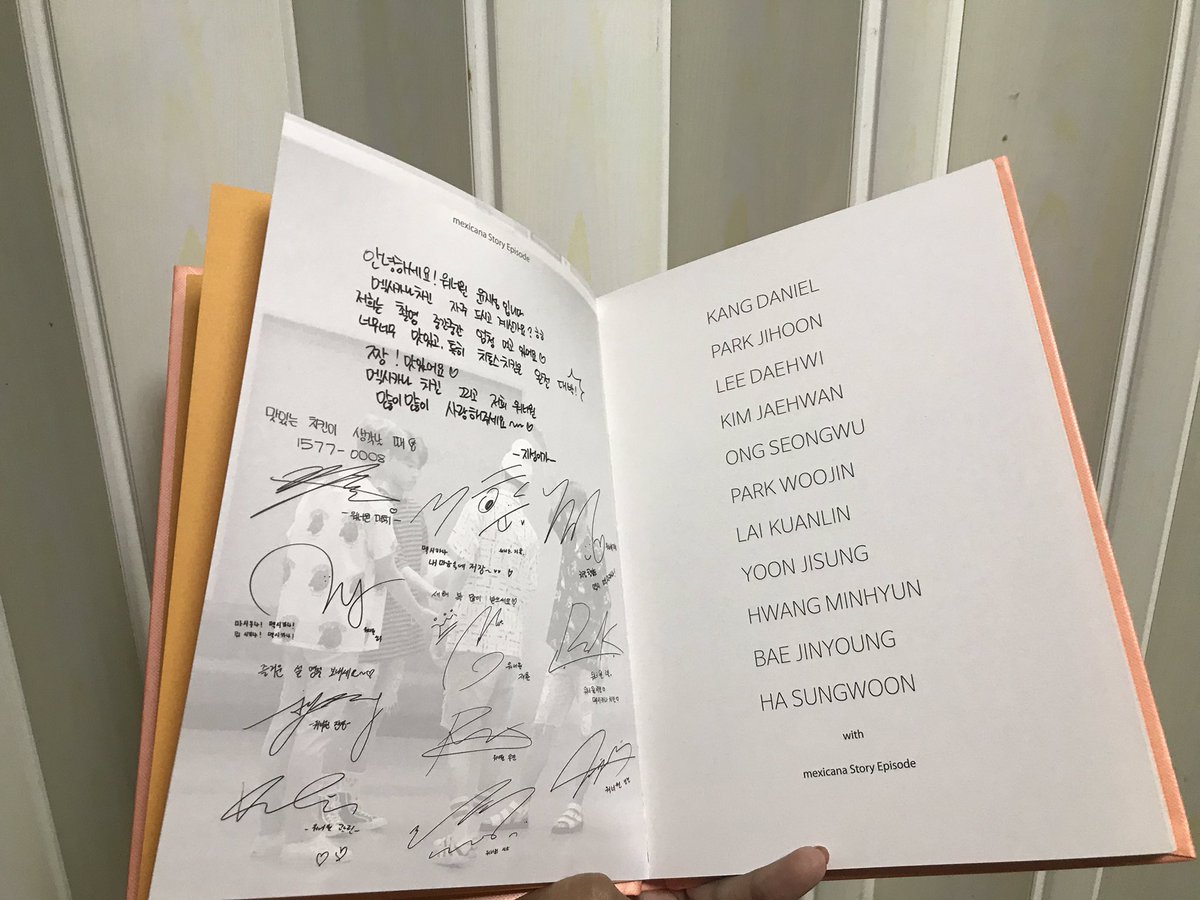 mexicana Story Episode
안녕하세요! 워너원 윤지성 입니다
멕시카나 치킨 자주 드시고 계신가요?
저희는 촬영 중간중간 엄청 먹고 있어요♡
너무너무 맛있고, 특히 치토스치킨은 완전 대박!
짱! 맛있어요♡
멕시카나 치킨 그리고 저희 워너원
많이많이 사랑해주세요~~♡
-지성이가-
맛있는 치킨이 생각날 때
1577-0008
-워너원 대휘-
멕시카나
내 마음속에 저장~
새해 복 많이 받으세요♡
즐거운 설 명절 보내세요~♡
KANG DANIEL
PARK JIHOON
LEE DAEHWI
KIM JAEHWAN
ONG SEONGWU
PARK WOOJIN
LAI KUANLIN
YOON JISUNG
HWANG MINHYUN
BAE JINYOUNG
HA SUNGWOON
with
mexicana Story Episode